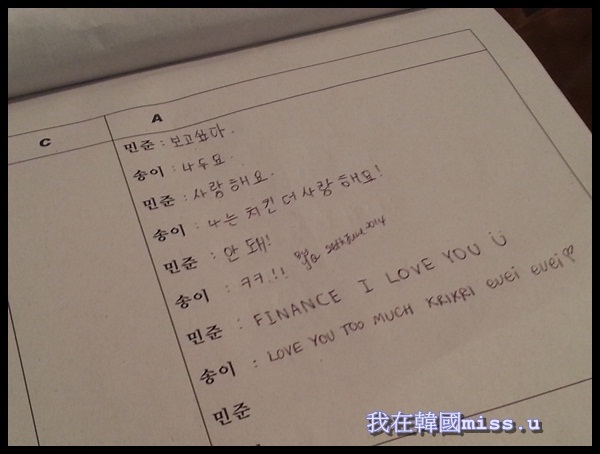 C
A
민준 : 보고싶다.
송이 : 나두요.
민준 : 사랑해요.
송이 : 나는 치킨 더 사랑해요!
민준 : 안 돼!
송이 : ㅋㅋ!! 2014
민준 : FINANCE I LOVE YOU
송이 : LOVE YOU TOO MUCH KRIKRI evei evei
민준
我在韓國miss.u